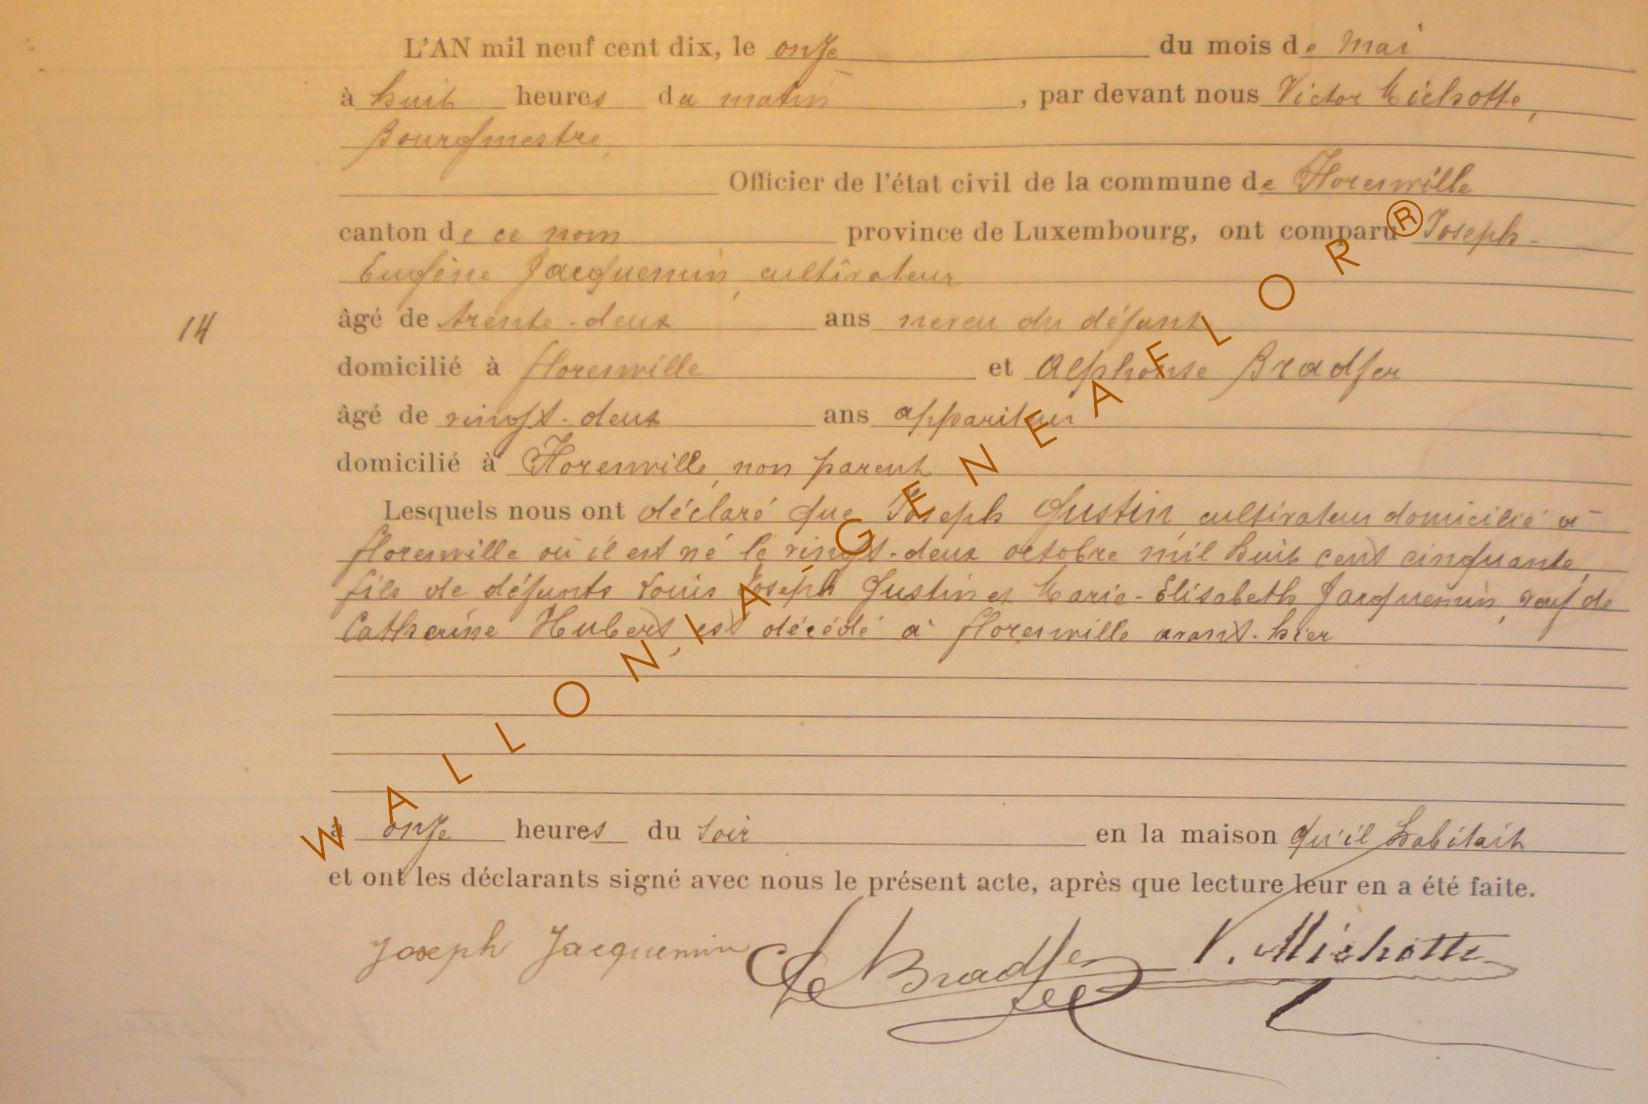 L'AN mil neuf cent dix, le onze du mois de Mai
à huit heures du matin, par devant nous Victor Michotte,
Bourgmestre,
Officier de l'état civil de la commune de Florenville
canton de ce nom province de Luxembourg, ont comparu Joseph-
Eugène Jacquemin, cultivateur
14
âgé de trente-deux ans neveu du défunt
domicilié à florenville et Alphonse Bradfer
âgé de vingt-deux ans appariteur
domicilié à Florenville, non parent
Lesquels nous ont déclaré que Joseph Gustin, cultivateur domicilié à
florenville où il est né le vingt-deux octobre mil huit cent cinquante,
fils de défunts Louis Joseph Gustin et Marie-Elisabeth Jacquemin, veuf de
Catherine Hubert, est décédé à florenville avant-hier
à onze heures du soir en la maison qu'il habitait
et ont les déclarants signé avec nous le présent acte, après que lecture leur en a été faite.
Joseph Jacquemin Bradfer V. Michotte
WALLONIA-GENEAFLOR®